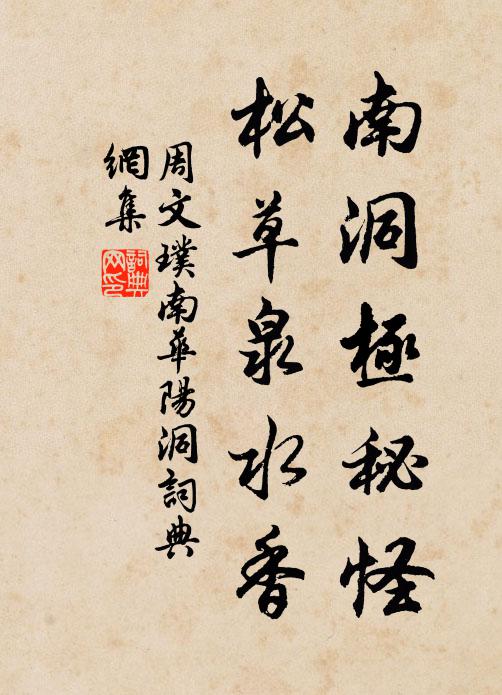 南洞極秘怪
松草泉水香
周文璞南華陽洞詞典
網集
詞典網印